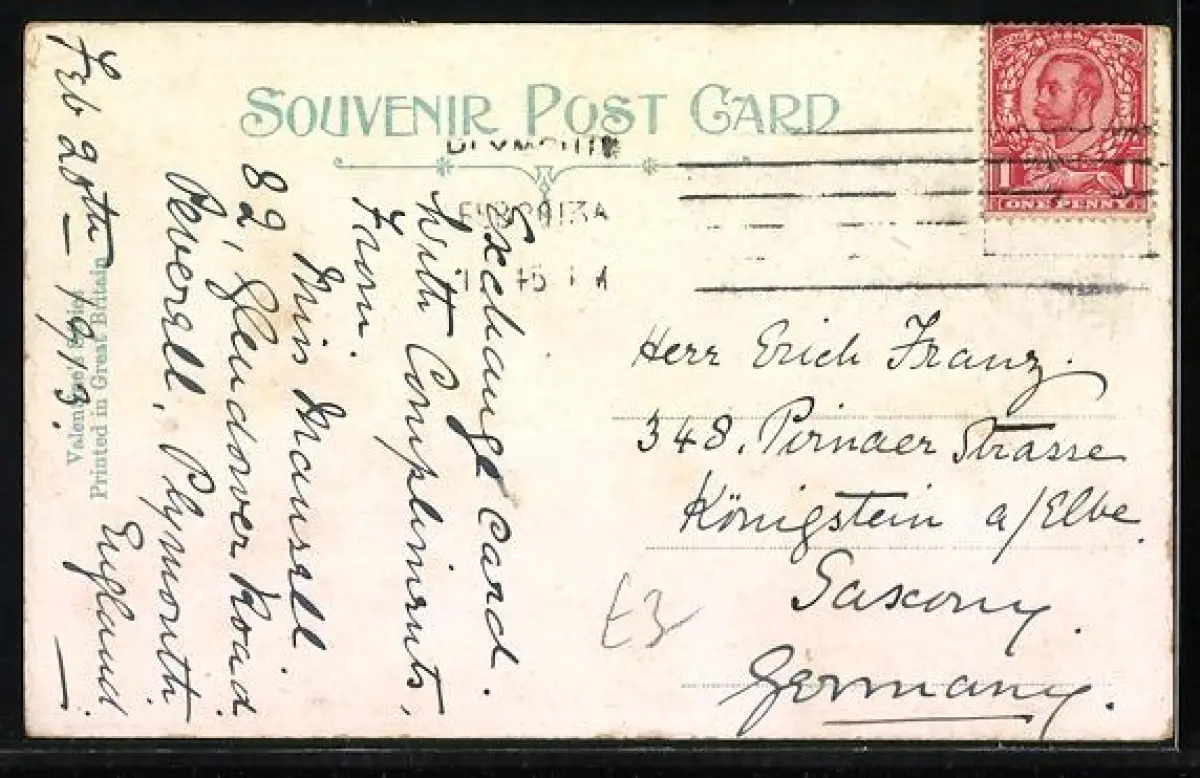 SOUVENIR POST CARD
PLYMOUTH
1
1
ONE PENNY
Exchange Card.
With Compliments,
From.
Miss Maunsell.
82, Glendower Road
Peverell. Plymouth
England.
Feb 20th - 1913.
Valentine's Series
Printed in Great Britain
Herr Erich Franz.
348. Pirnaer Strasse
Königstein a/Elbe.
Saxony.
Germany.
£3